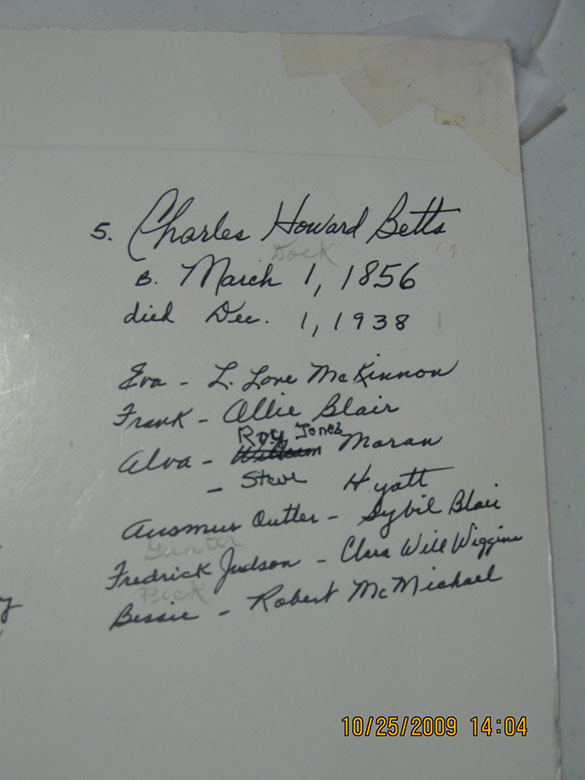 5. Charles Howard Betts
Dock
B. March 1, 1856
died Dec. 1, 1938
Eva - L. Lone McKinnon
Frank - Allie Blair
Roy Jones
Alva - William Moran
- Steve Hyatt
Ausmus Outler - Sybil Blair
Gunter
Fredrick Judson - Clara Will Wiggins
Peck
Bessie - Robert McMichael
10/25/2009 14:04